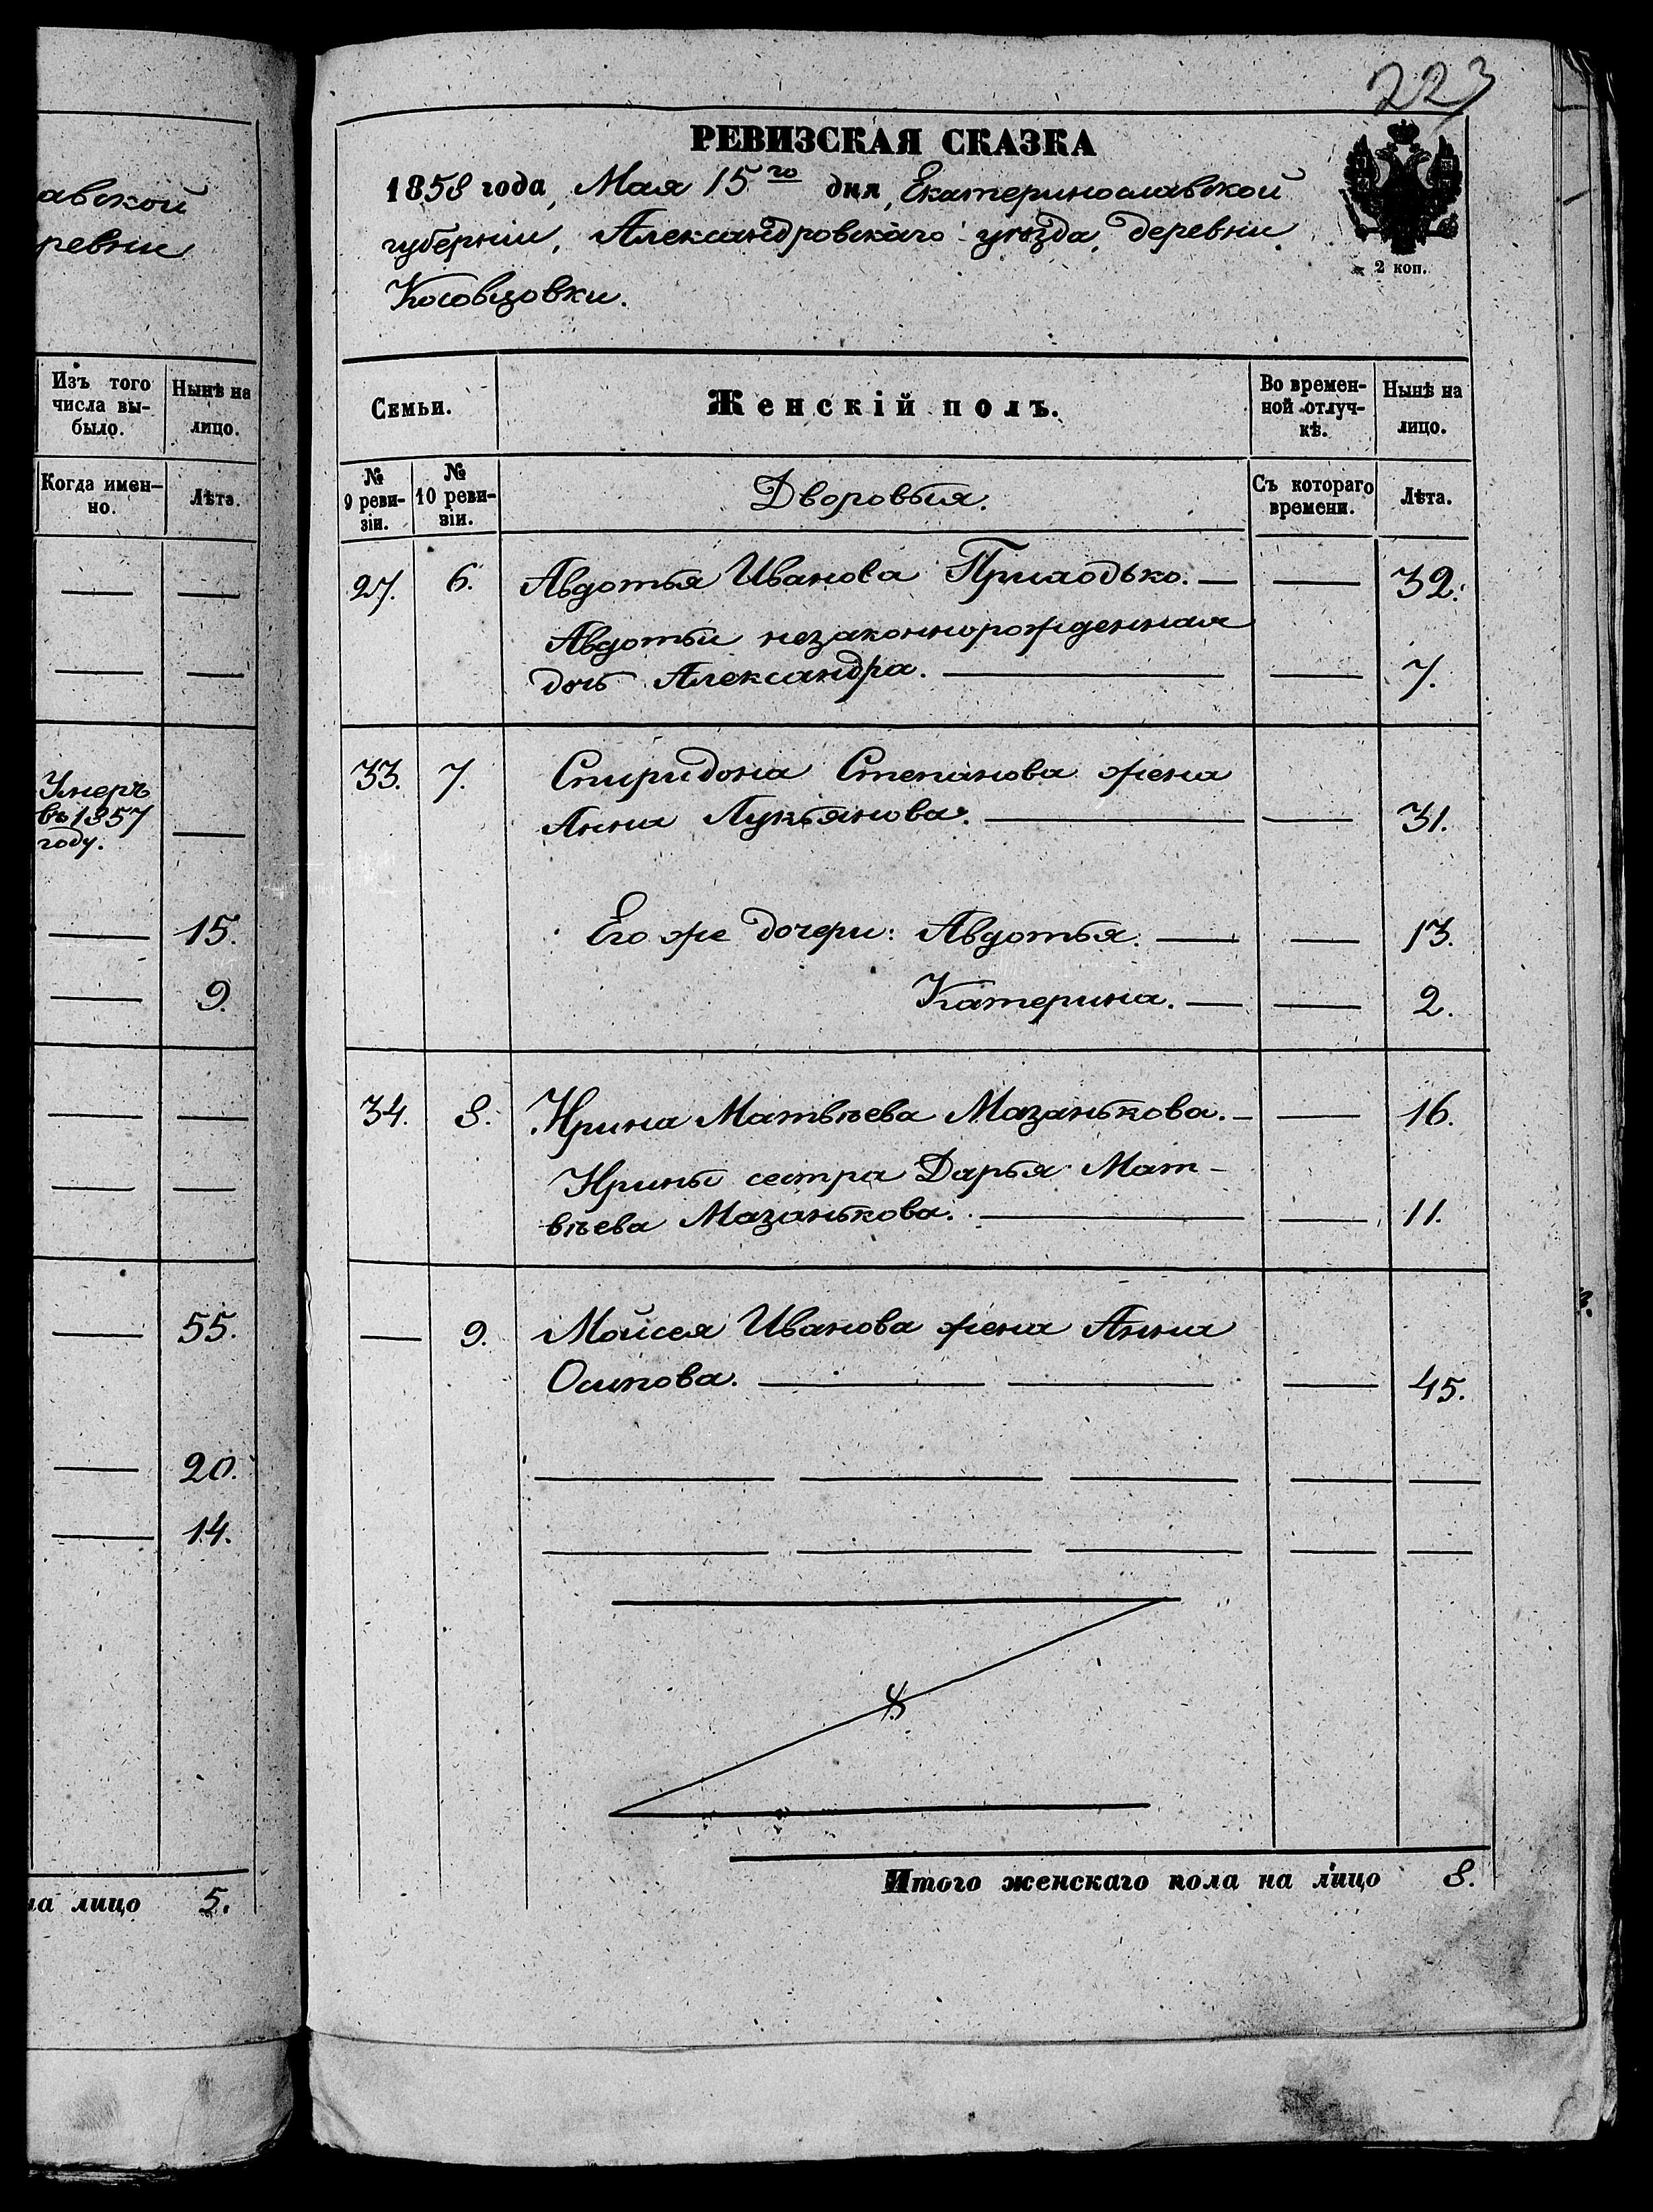 авской
ревни
Изъ того
числа вы-
было.
Нынѣ на
лицо.
Когда имен-
но.
Лѣта.
Умеръ
въ 1857
году.
15.
9.
55.
20.
14.
на лицо 5.
223
РЕВИЗСКАЯ СКАЗКА
1858 года, Мая 15го дня, Екатеринославской
губерніи, Александровскаго уѣзда, деревни
Косовцовки.
2 коп.
Семьи.
Женскій полъ.
Во времен-
ной отлуч-
кѣ.
Нынѣ на
лицо.
№
9 реви-
зіи.
№
10 реви-
зіи.
Дворовыя.
Съ котораго
времени.
Лѣта.
27. 6. Авдотья Иванова Приходько. — — 32.
Авдотьи незаконнорожденная
дочь Александра. — — 7.
33. 7. Спиридона Степанова жена
Анна Лукьянова. — — 31.
Его же дочери: Авдотья. — — 13.
Катерина. — — 2.
34. 8. Ирина Матвѣева Мазанькова. — — 16.
Ирины сестра Дарья Мат-
вѣева Мазанькова. — — 11.
— 9. Мойсея Иванова жена Анна
Осипова. — — — 45.
Итого женскаго пола на лицо 8.